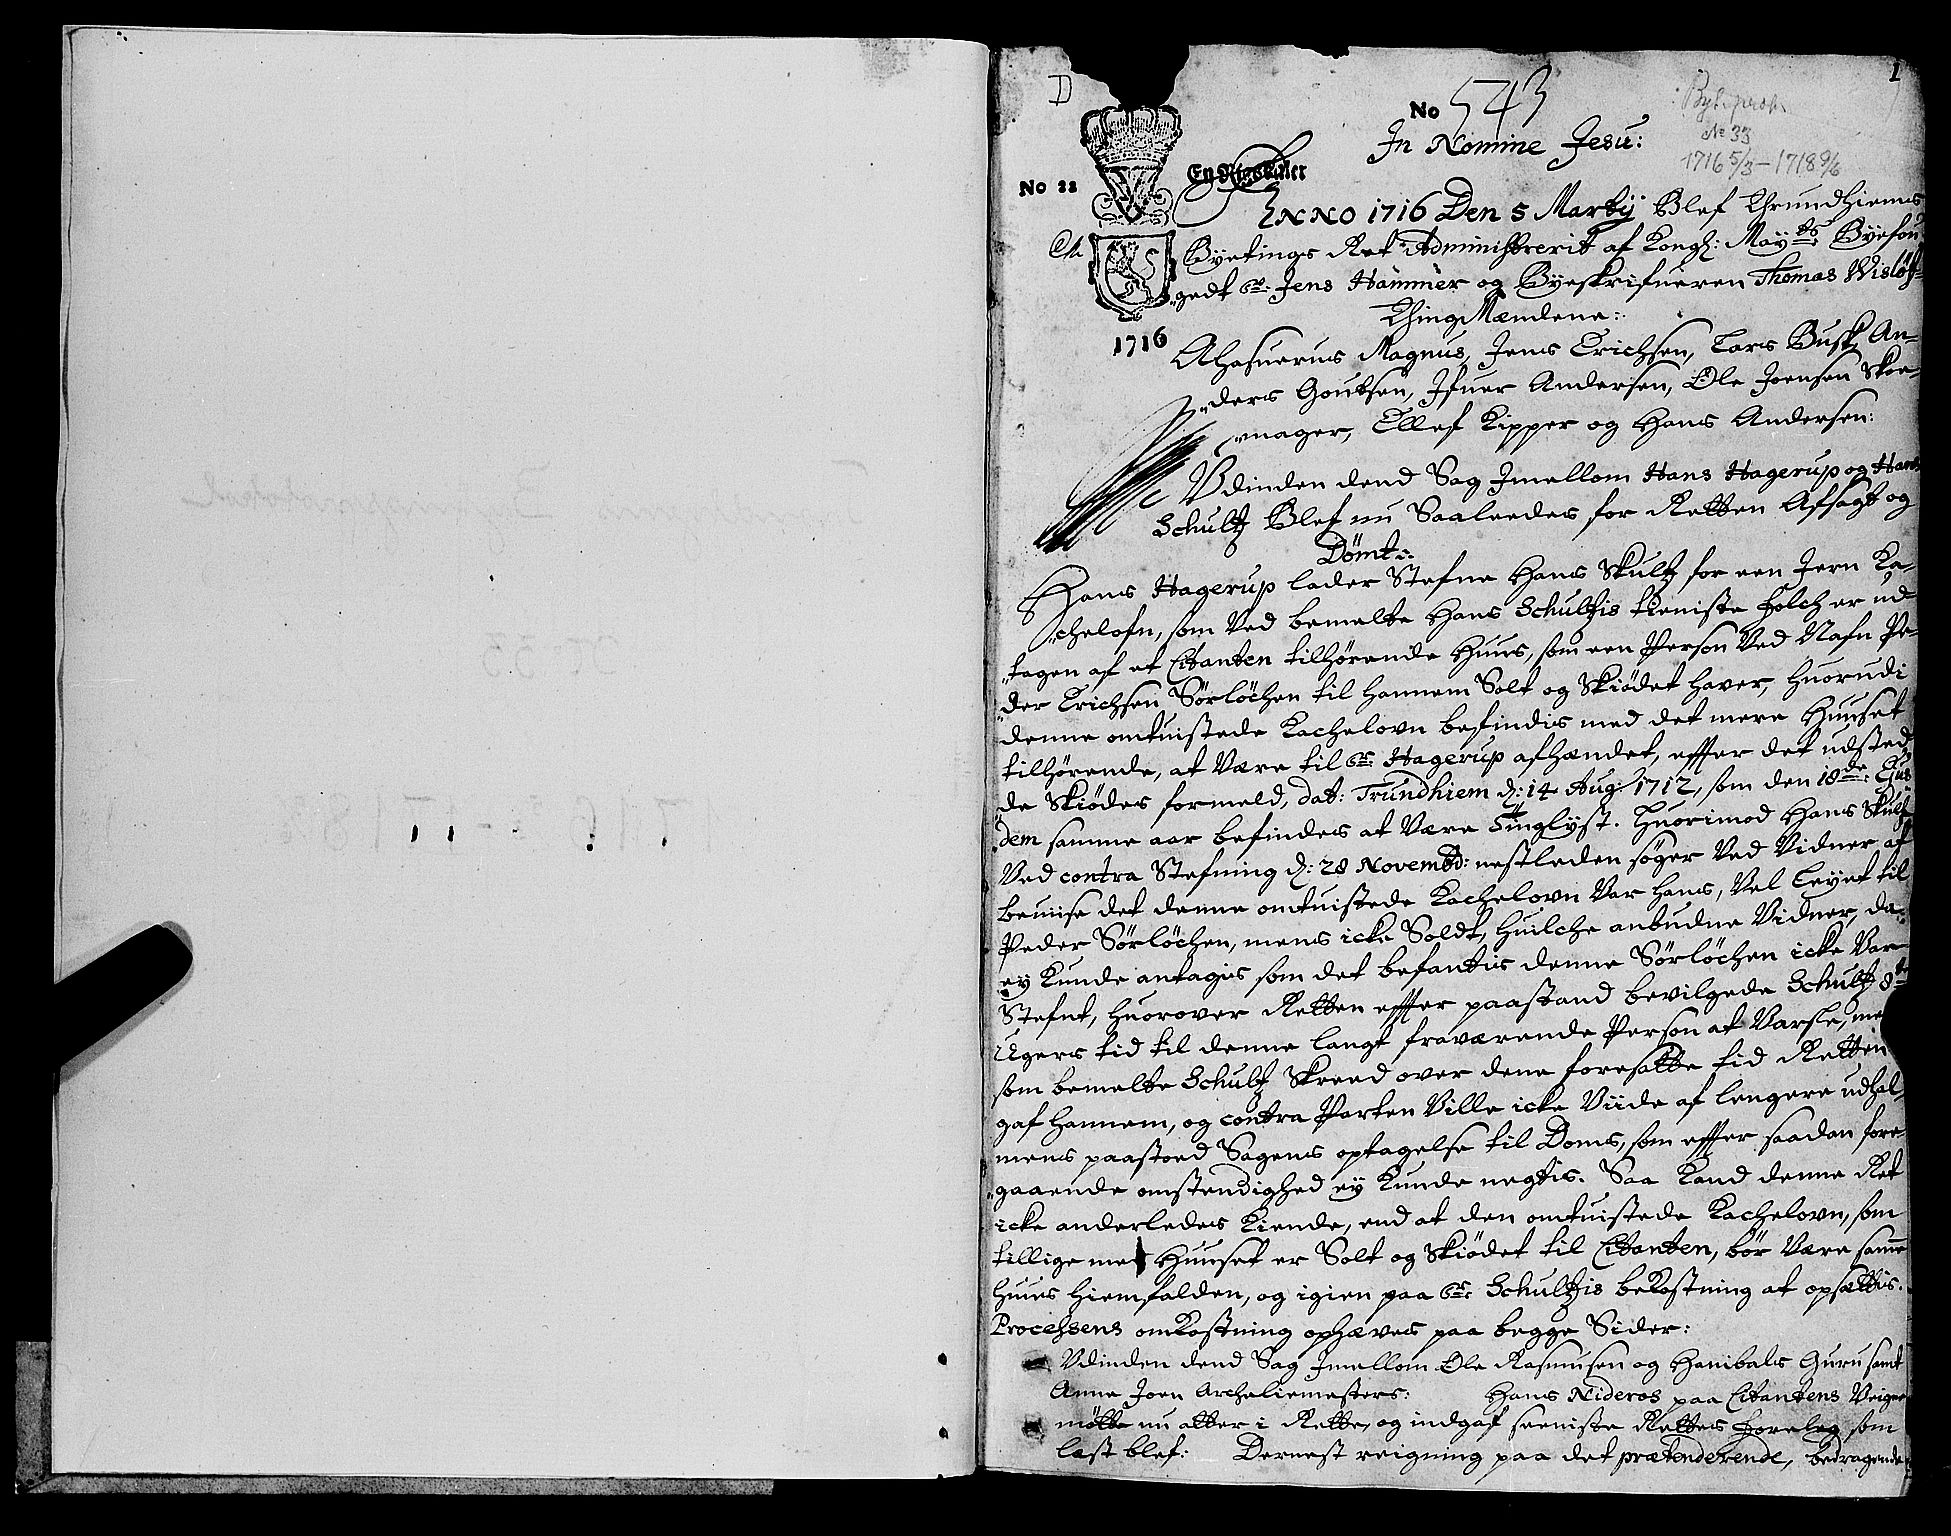 D
1
No 543
Bytingsprot.
No 33
1716 5/3 - 1718 9/6
In Nomine Jesu:
No 22
En Rigsdaler
1716
ANNO 1716 Den 5 Martij Blef Thrundhiems
Byetings Ret Administrerit af Kongl: Mayts Byefou
gedt Sr: Jens Hammer og Byeskrifueren Thomas Wisløf
Thing Mændene:
Ahasuerus Magnus, Jens Erichsen, Lars Busk, An-
ders Goutsen, Ifuer Andersen, Ole Joensen Skoe-
mager, Ellef Kipper og Hans Andersen:
Udinden dend Sag Imellom Hans Hagerup og Hans
Schultz Blef nu Saaledes for Retten Afsagt og
Dømt:
Hans Hagerup lader Stefne Hans Skultz for een Jern Ka-
chelofn, som Ved bemelte Hans Schultzis tieniste folch er ud-
tagen af et Citanten tilhørende Huus, som een Person Ved Nafn Pe-
der Erichsen Sørløchen til hannem Solt og Skiødet haver, huorudi
denne omtuistede Kachelovn befindis med det mere Huuset
tilhørende, at Være til Sr: Hagerup afhændet, effter det udsted
de Skiødes formeld, dat: Trundhiem d: 14 Aug: 1712, som den 18de Ejus
dem samme aar befindes at Være Tinglyst. Huorimod Hans Skultz
Ved contra Stefning d: 28 Novembr: nestleden søger Ved Vidner at
beviise det denne omtuistede Kachelovn Var hans, Vel Leyet til
Peder Sørløchen, mens icke Soldt, huilche anbudne Vidner, da
ey Kunde antagis som det befantis denne Sørløchen icke Var
Stefnt, huorover Retten effter paastand bevilgede Schultz 8te
Ugers tid til denne langt fraværende Person at Varsle, me
som bemelte Schultz Skreed over dene foresatte tid Retten
gaf hannem, og contra Parten Ville icke Viide af lengere udhal,
mens paastoed Sagens optagelse til Doms, som effter saadan fore
gaaende omstendighed ey Kunde negtis. Saa Kand denne Ret
icke anderledes Kiende, end at den omtuistede Kachelovn, som
tillige med Huuset er Solt og Skiødet til Citanten, bør Være samme
huus hiemfalden, og igien paa Sr: Schultzis bekostning at opsættis.
Processens omkostning ophæves paa begge Sider:
Udinden dend Sag Imellom Ole Rasmusen og Hanibals Guru samt
Anne Joen Archeliemesters: Hans Nideros paa Citantens Veigne
møtte nu atter i Rette, og indgaf seeniste Rettes forelæg som
læst blef: Dernest reigning paa det prætenderende, bedragende